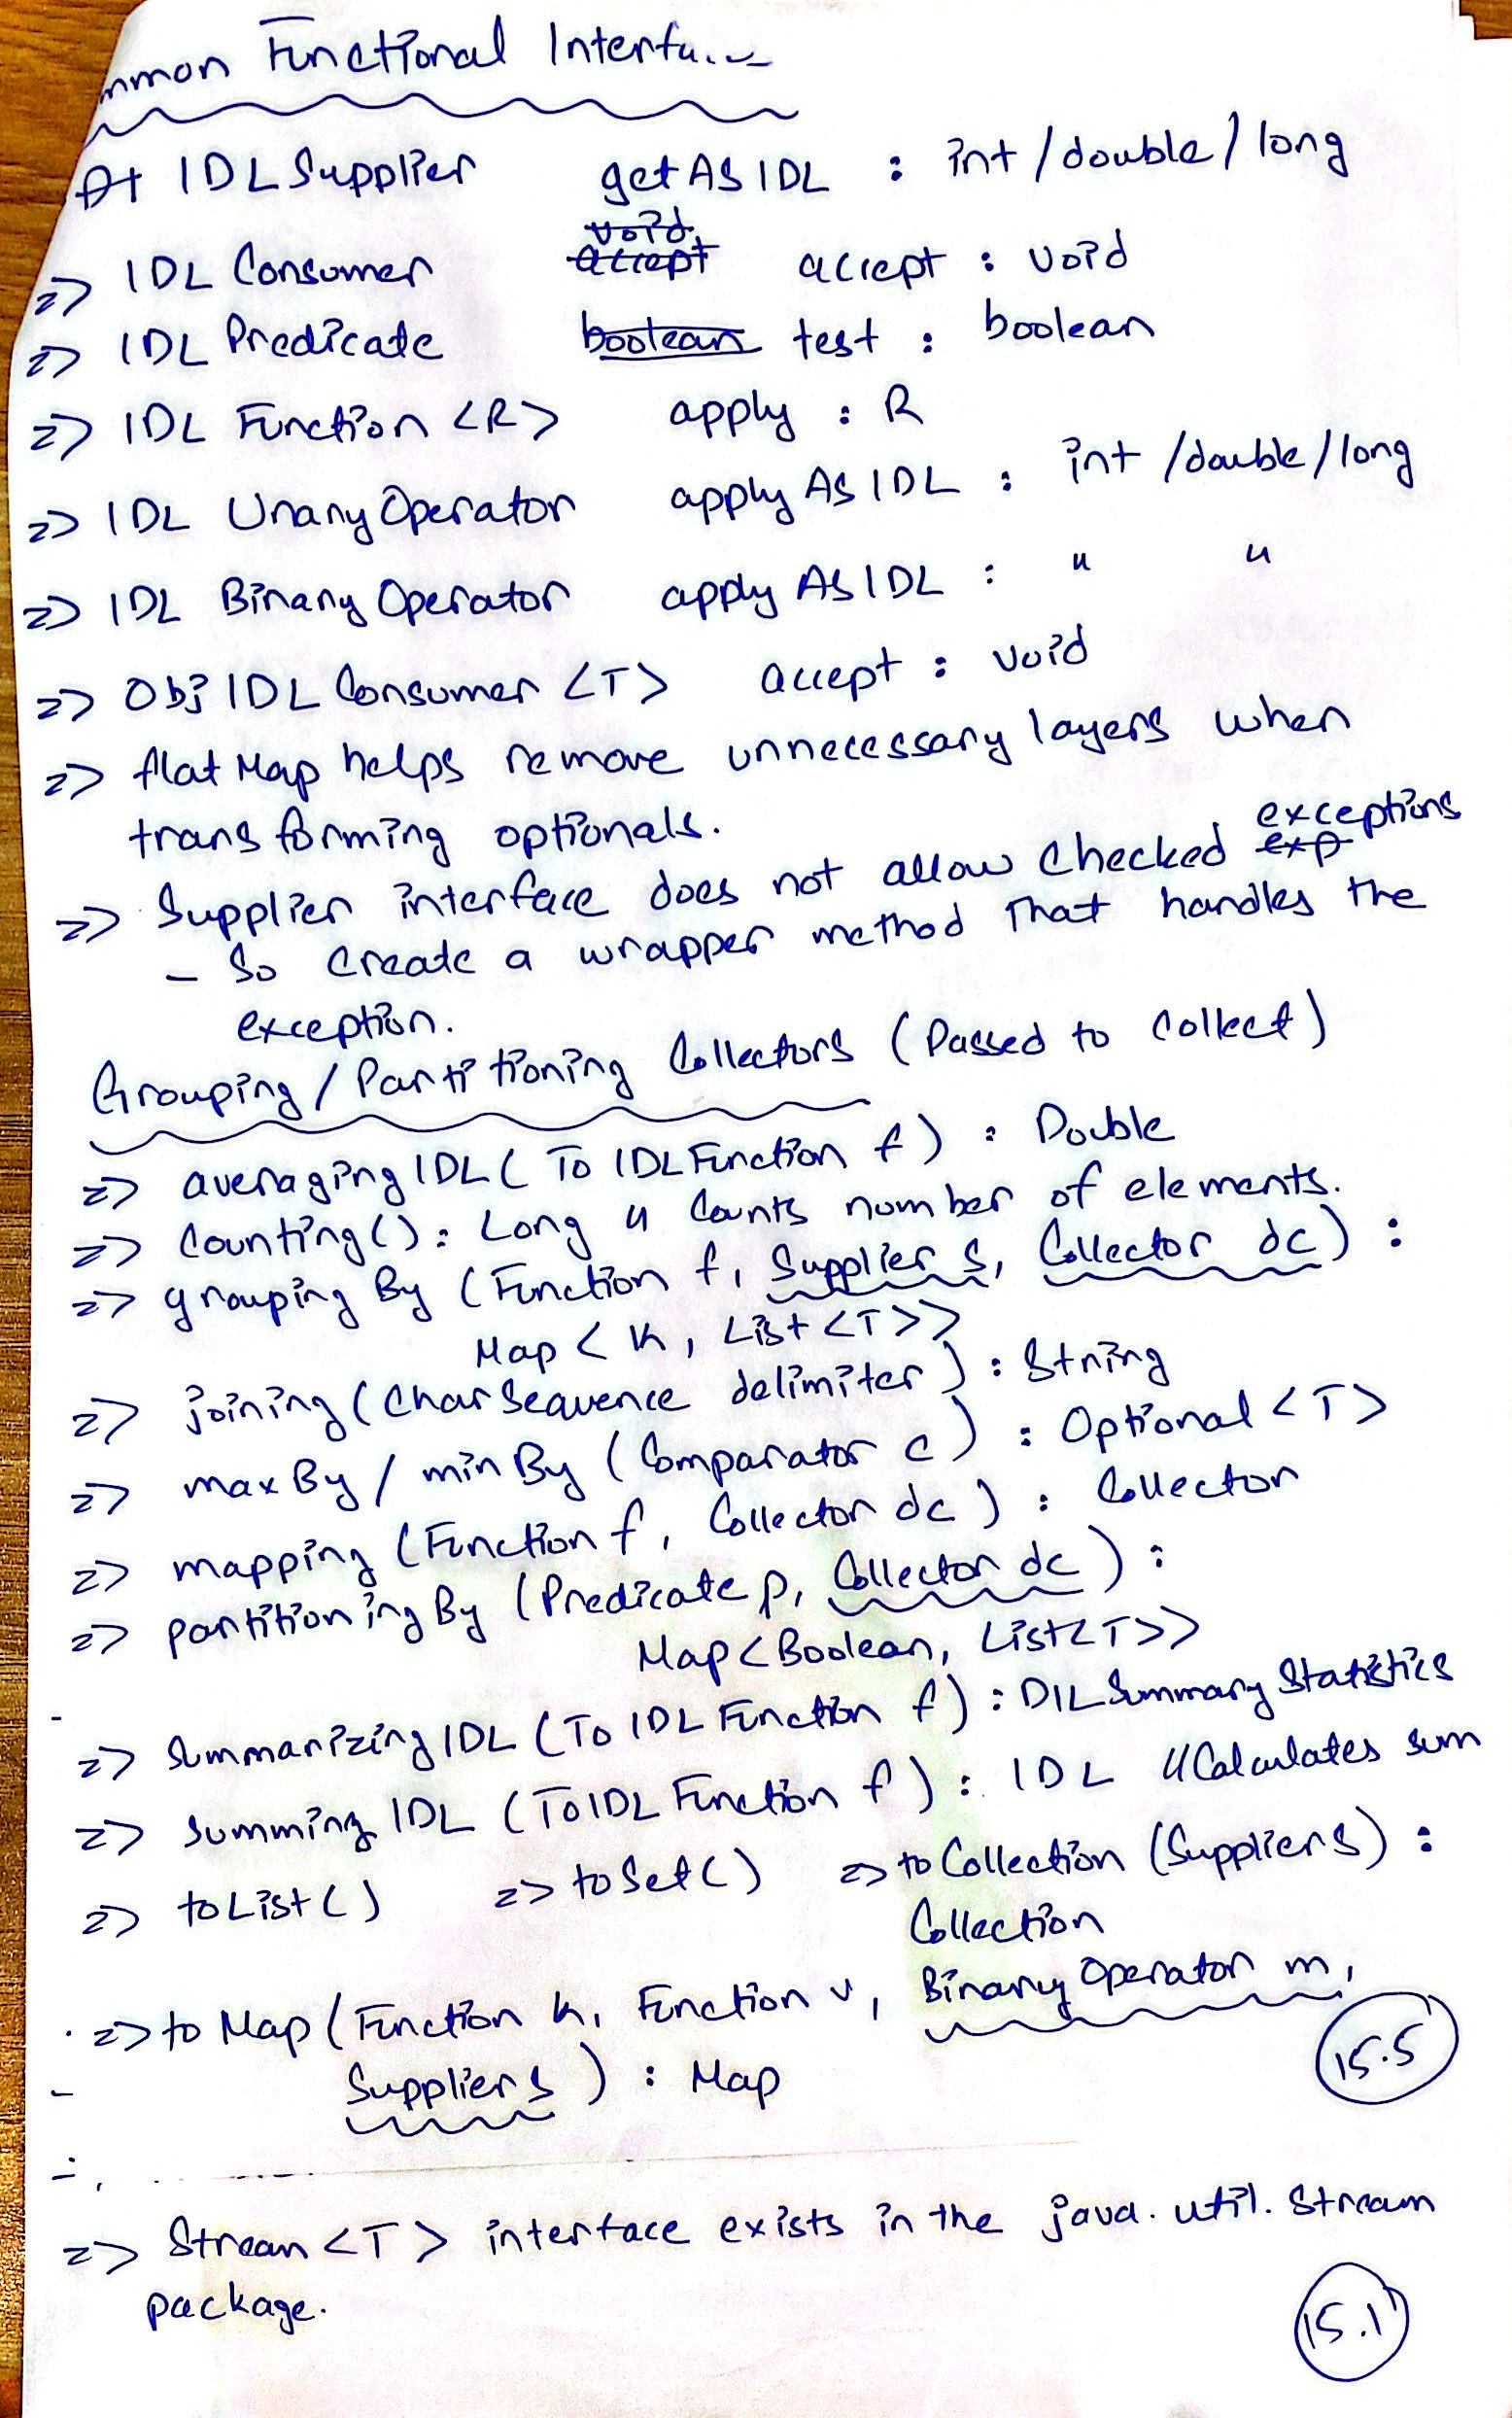 mmon Functional Interfa
IDL Supplier getAs IDL : int / double / long
void
accept
=> IDL Consumer accept : void
=> IDL Predicate boolean test : boolean
=> IDL Function <R> apply : R
=> IDL Unary Operator apply As IDL : int / double / long
=> IDL Binary Operator apply As IDL : " "
=> Obj IDL Consumer <T> accept : void
=> flat Map helps remove unnecessary layers when
transforming optionals.
=> Supplier interface does not allow checked exp exceptions
- So create a wrapper method that handles the
exception.
Grouping / Partitioning Collectors (Passed to collect)
=> averaging IDL ( To IDL Function f ) : Double
=> Counting() : Long // Counts number of elements.
=> grouping By ( Function f, Supplier s, Collector dc ) :
Map < K, List <T>>
=> joining ( Char Sequence delimiter ) : String
=> max By / min By ( Comparator c ) : Optional <T>
=> mapping ( Function f, Collector dc ) : Collector
=> partitioning By ( Predicate p, Collector dc ) :
Map <Boolean, List<T>>
=> Summarizing IDL ( To IDL Function f ) : DIL Summary Statistics
=> Summing IDL ( To IDL Function f ) : IDL // Calculates sum
=> to List ( ) => to Set ( ) => to Collection (Supplier s) :
Collection
=> to Map ( Function k, Function v, Binary Operator m,
Supplier s ) : Map
15.5
=> Stream <T> interface exists in the java. util. Stream
package.
15.1